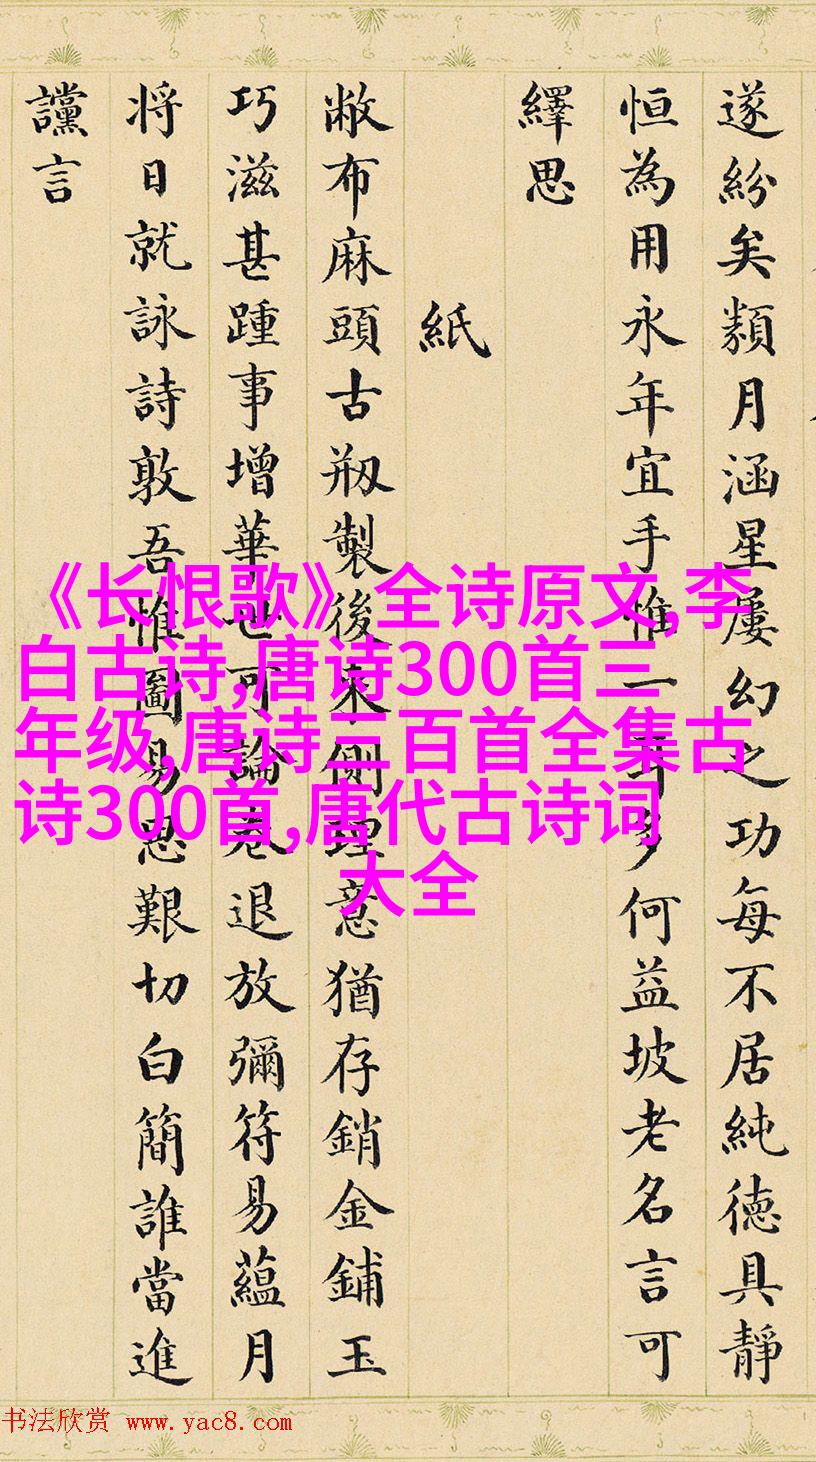 遂紛矣類月涵星屢幻之功每不居純德具靜
恒為用永年宜手惟一耳多何益坡老名言可
繹思
紙
敝布麻頭古剏製後來側理意猶存銷金鋪玉
巧滋甚踵事增華世可論卷退放彌符易蘊月
将日就詠詩敦吾惟圖易思艱切白簡誰當進
讜言
《长恨歌》全诗原文,李
白古诗,唐诗300首三
年级,唐诗三百首全集古
诗300首,唐代古诗词
大全
书法欣赏 www.yac8.com